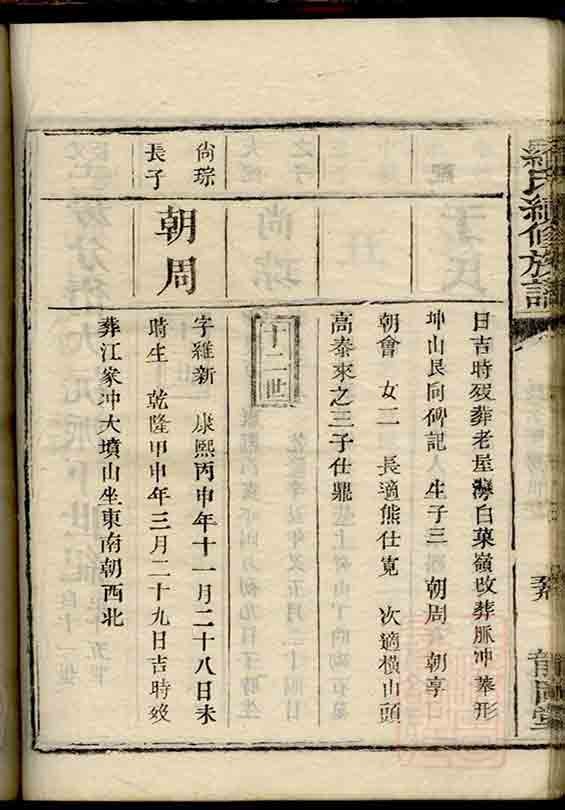 羅氏續修族譜
日吉時殁葬老屋灣白菓嶺改葬脈冲墓形
坤山艮向碑記人生子三 朝周 朝享
朝會 女二 長適熊仕寬 次適橫山頭
高泰來之三子仕鼎
十二世
尙琮
長子
朝周
字維新 康熙丙申年十一月二十八日未
時生 乾隆甲申年三月二十九日吉時殁
葬江家冲大墳山坐東南朝西北